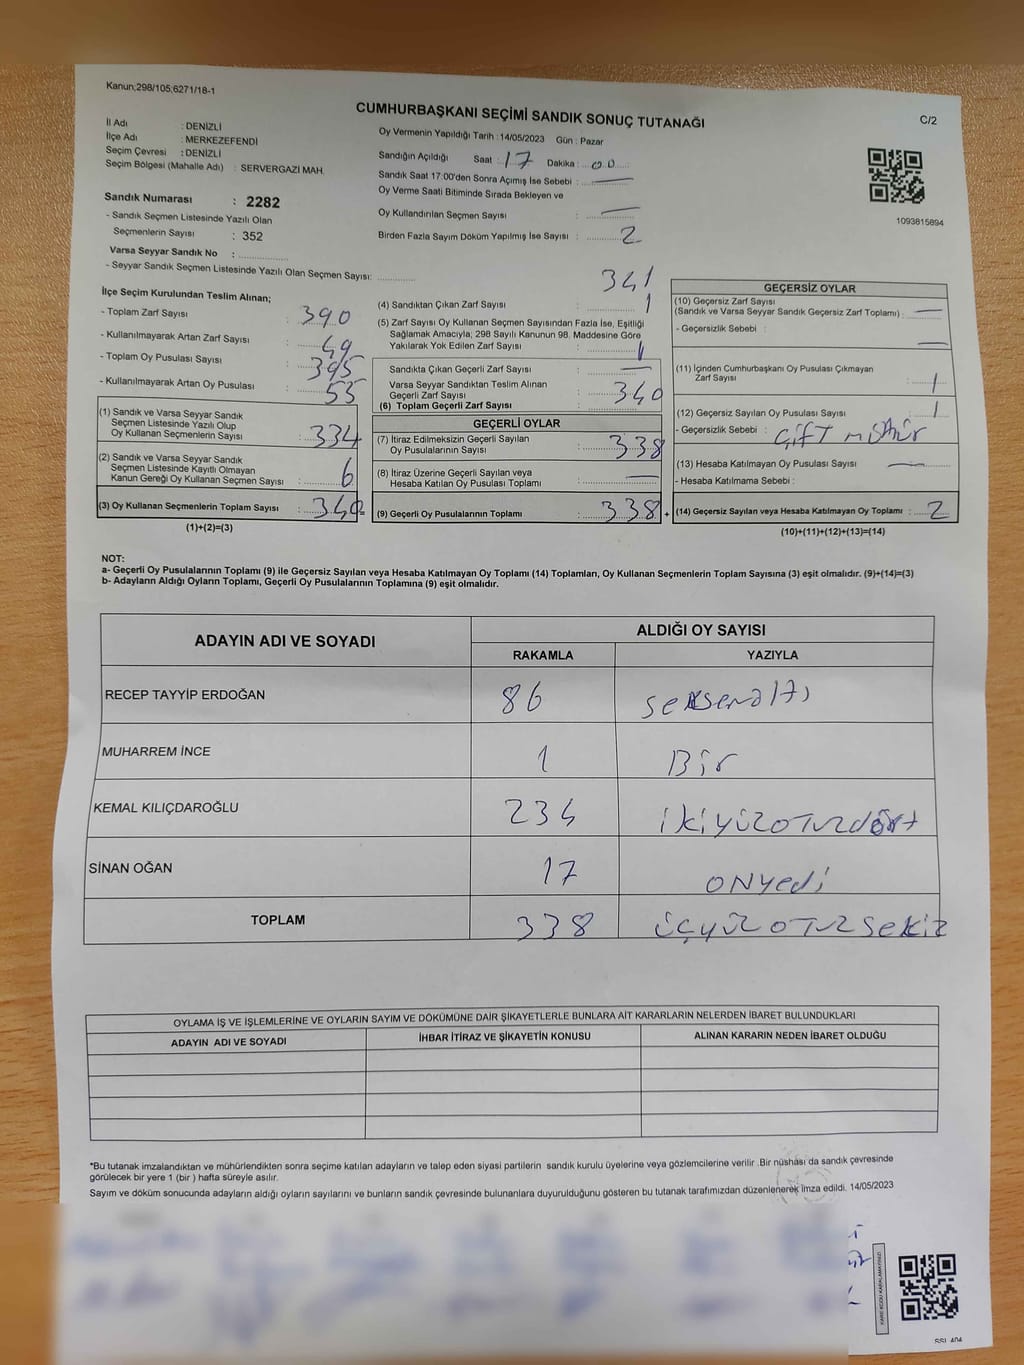 Kanun;298/105;6271/18-1
CUMHURBAŞKANI SEÇİMİ SANDIK SONUÇ TUTANAĞI
C/2
İl Adı : DENİZLİ
İlçe Adı : MERKEZEFENDİ
Seçim Çevresi : DENİZLİ
Seçim Bölgesi (Mahalle Adı) : SERVERGAZİ MAH.
Sandık Numarası : 2282
- Sandık Seçmen Listesinde Yazılı Olan
Seçmenlerin Sayısı : 352
Varsa Seyyar Sandık No :
- Seyyar Sandık Seçmen Listesinde Yazılı Olan Seçmen Sayısı:
Oy Vermenin Yapıldığı Tarih : 14/05/2023 Gün : Pazar
Sandığın Açıldığı Saat : 17 Dakika : 00
Sandık Saat 17:00'den Sonra Açımış İse Sebebi : —
Oy Verme Saati Bitiminde Sırada Bekleyen ve
Oy Kullandırılan Seçmen Sayısı : —
Birden Fazla Sayım Döküm Yapılmış İse Sayısı : 2
1093815894
İlçe Seçim Kurulundan Teslim Alınan;
- Toplam Zarf Sayısı : 390
- Kullanılmayarak Artan Zarf Sayısı : 49
- Toplam Oy Pusulası Sayısı : 395
- Kullanılmayarak Artan Oy Pusulası : 55
(1) Sandık ve Varsa Seyyar Sandık
Seçmen Listesinde Yazılı Olup
Oy Kullanan Seçmenlerin Sayısı : 334
(2) Sandık ve Varsa Seyyar Sandık
Seçmen Listesinde Kayıtlı Olmayan
Kanun Gereği Oy Kullanan Seçmen Sayısı : 6
(3) Oy Kullanan Seçmenlerin Toplam Sayısı : 340
(1)+(2)=(3)
341
(4) Sandıktan Çıkan Zarf Sayısı : 1
(5) Zarf Sayısı Oy Kullanan Seçmen Sayısından Fazla İse, Eşitliği
Sağlamak Amacıyla; 298 Sayılı Kanunun 98. Maddesine Göre
Yakılarak Yok Edilen Zarf Sayısı : 1
Sandıkta Çıkan Geçerli Zarf Sayısı : —
Varsa Seyyar Sandıktan Teslim Alınan
Geçerli Zarf Sayısı : 340
(6) Toplam Geçerli Zarf Sayısı :
GEÇERLİ OYLAR
(7) İtiraz Edilmeksizin Geçerli Sayılan
Oy Pusulalarının Sayısı : 338
(8) İtiraz Üzerine Geçerli Sayılan veya
Hesaba Katılan Oy Pusulası Toplamı : —
(9) Geçerli Oy Pusulalarının Toplamı : 338
GEÇERSİZ OYLAR
(10) Geçersiz Zarf Sayısı
(Sandık ve Varsa Seyyar Sandık Geçersiz Zarf Toplamı) : —
- Geçersizlik Sebebi : —
(11) İçinden Cumhurbaşkanı Oy Pusulası Çıkmayan
Zarf Sayısı : 1
(12) Geçersiz Sayılan Oy Pusulası Sayısı : 1
- Geçersizlik Sebebi : Çift mühür
(13) Hesaba Katılmayan Oy Pusulası Sayısı : —
- Hesaba Katılmama Sebebi :
+ (14) Geçersiz Sayılan veya Hesaba Katılmayan Oy Toplamı : 2
(10)+(11)+(12)+(13)=(14)
NOT:
a- Geçerli Oy Pusulalarının Toplamı (9) ile Geçersiz Sayılan veya Hesaba Katılmayan Oy Toplamı (14) Toplamları, Oy Kullanan Seçmenlerin Toplam Sayısına (3) eşit olmalıdır. (9)+(14)=(3)
b- Adayların Aldığı Oyların Toplamı, Geçerli Oy Pusulalarının Toplamına (9) eşit olmalıdır.
ADAYIN ADI VE SOYADI
ALDIĞI OY SAYISI
RAKAMLA YAZIYLA
RECEP TAYYİP ERDOĞAN 86 seksenaltı
MUHARREM İNCE 1 Bir
KEMAL KILIÇDAROĞLU 234 ikiyüzotuzdört
SİNAN OĞAN 17 onyedi
TOPLAM 338 üçyüzotuzsekiz
OYLAMA İŞ VE İŞLEMLERİNE VE OYLARIN SAYIM VE DÖKÜMÜNE DAİR ŞİKAYETLERLE BUNLARA AİT KARARLARIN NELERDEN İBARET BULUNDUKLARI
ADAYIN ADI VE SOYADI İHBAR İTİRAZ VE ŞİKAYETİN KONUSU ALINAN KARARIN NEDEN İBARET OLDUĞU
*Bu tutanak imzalandıktan ve mühürlendikten sonra seçime katılan adayların ve talep eden siyasi partilerin sandık kurulu üyelerine veya gözlemcilerine verilir .Bir nüshası da sandık çevresinde
görülecek bir yere 1 (bir ) hafta süreyle asılır.
Sayım ve döküm sonucunda adayların aldığı oyların sayılarını ve bunların sandık çevresinde bulunanlara duyurulduğunu gösteren bu tutanak tarafımızdan düzenlenerek imza edildi. 14/05/2023
KARE KODU KARALAMAYINIZ!